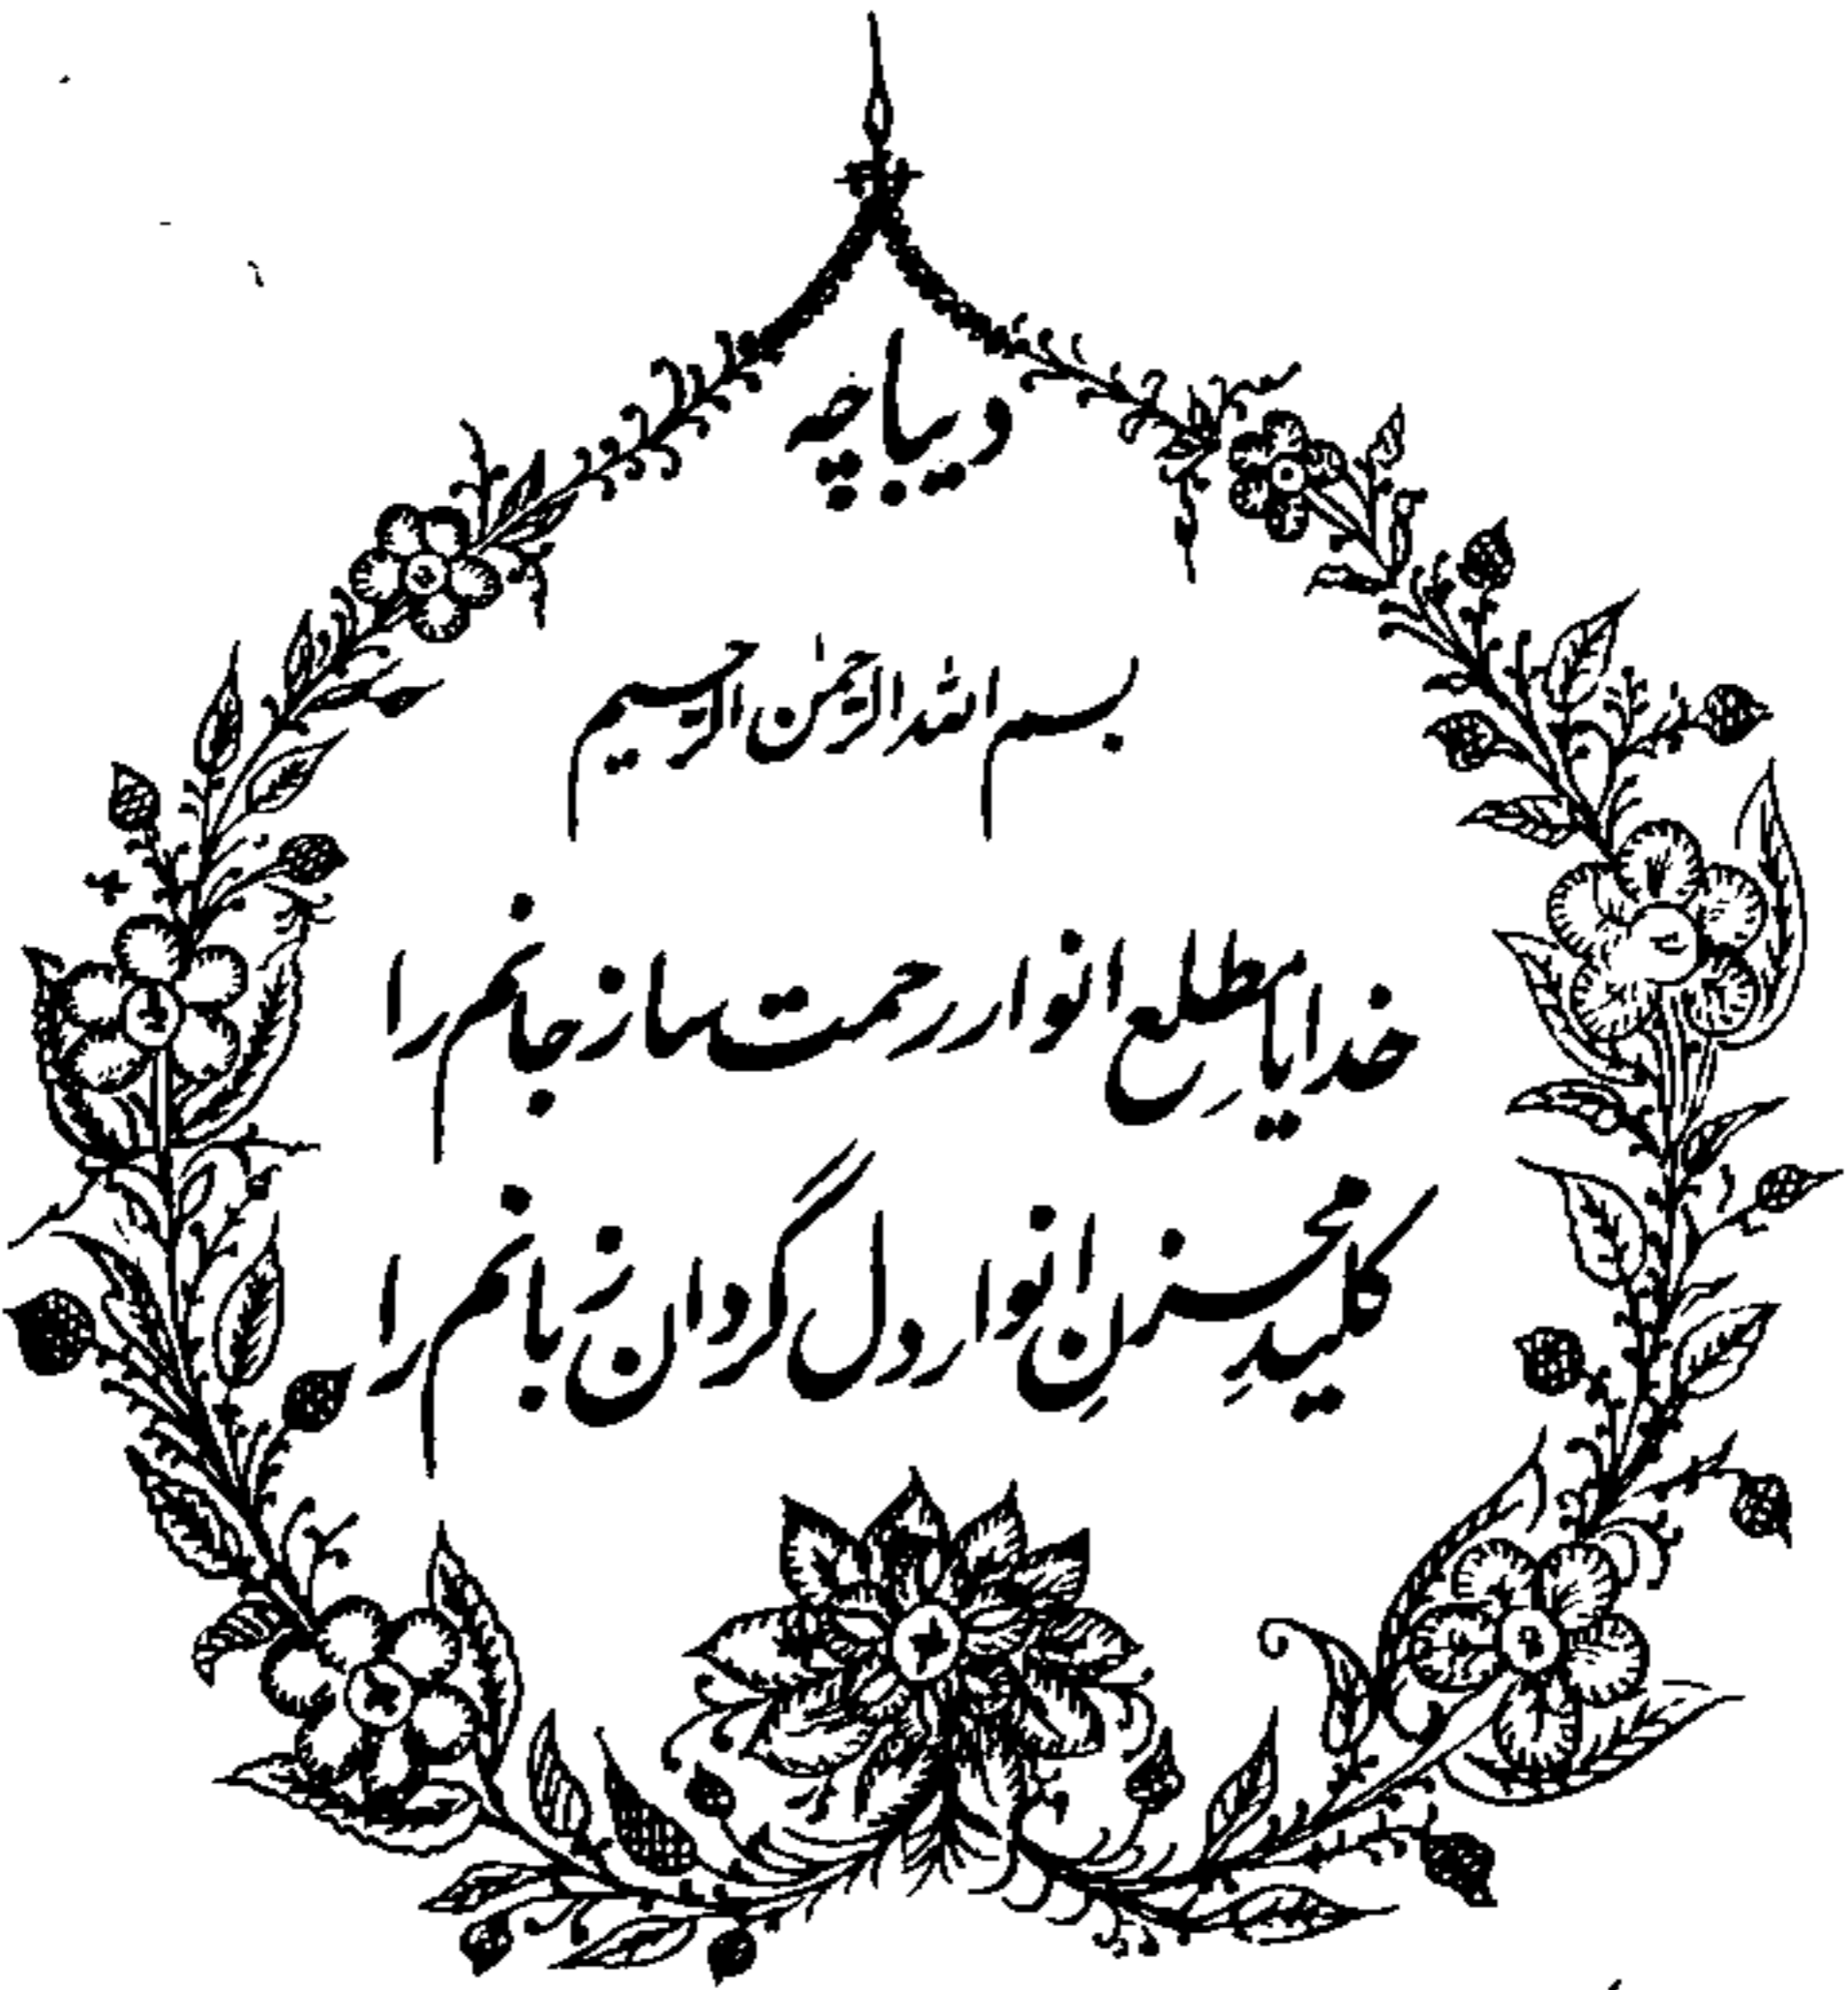 دیباچه
بسم الله الرحمٰن الرحیم
خدایا مطلعِ انوار رحمت ساز جانم را
کلیدِ مخزنِ انوار دل گردان زبانم را